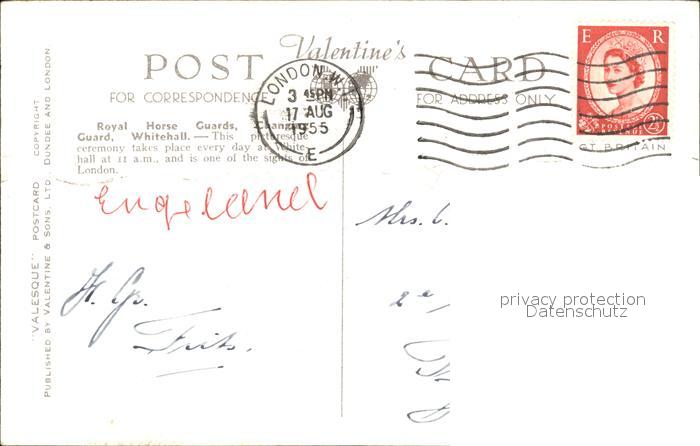 Valentine's
POST CARD
FOR CORRESPONDENC
FOR ADDRESS ONLY
LONDON. W.
3 45 PM
17 AUG
1955
E
E R
POSTAGE
2½
GT. BRITAIN
Royal Horse Guards, Changing
Guard, Whitehall. — This picturesque
ceremony takes place every day at White-
hall at 11 a.m., and is one of the sights of
London.
Engeland
H. Gr.
Frits.
Mrs.
2e
"VALESQUE" POSTCARD COPYRIGHT
PUBLISHED BY VALENTINE & SONS, LTD., DUNDEE AND LONDON
privacy protection
Datenschutz